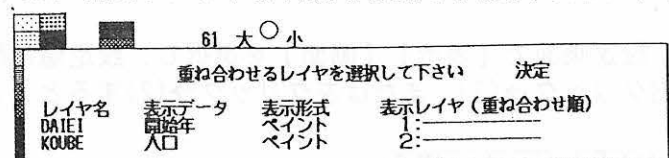 61 大 小
重ね合わせるレイヤを選択して下さい 決定
レイヤ名 表示データ 表示形式 表示レイヤ(重ね合わせ順)
DAIEI 開始年 ペイント 1:
KOUBE 人口 ペイント 2: